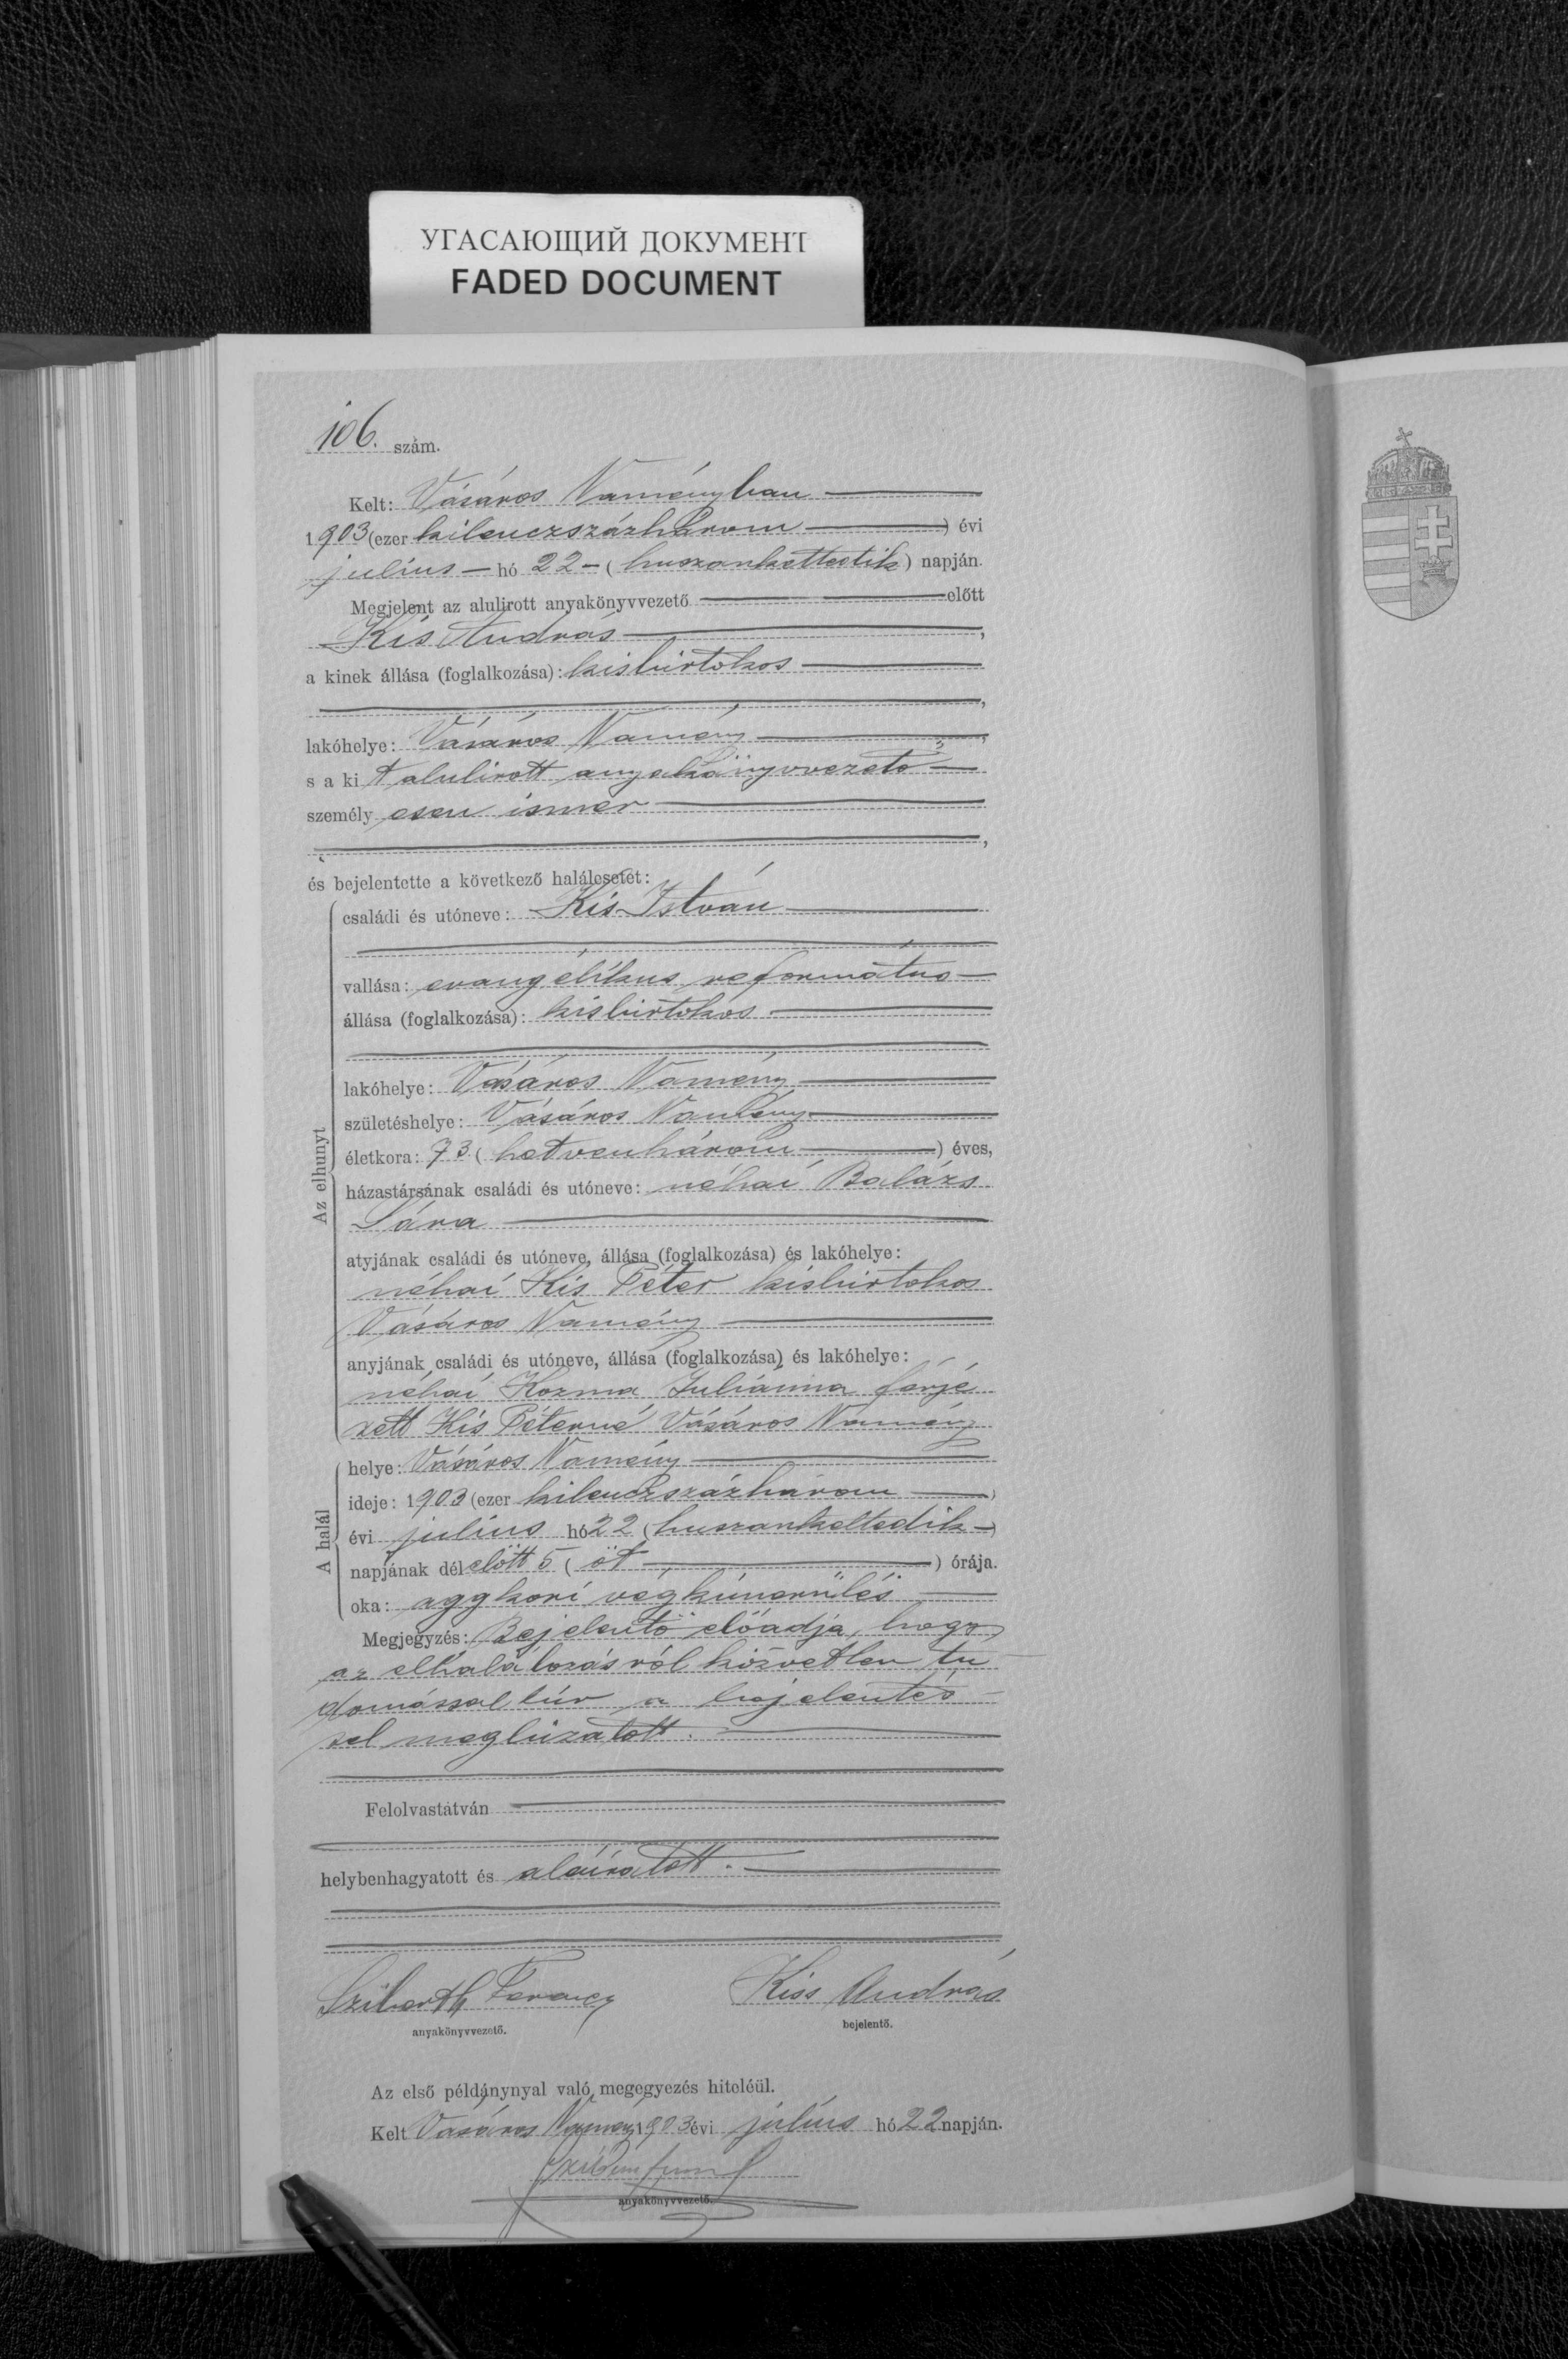 УГАСАЮЩИЙ ДОКУМЕНТ
FADED DOCUMENT
106. szám.
Kelt: Vásáros Naményban
1903 (ezer kilenczszázhárom) évi
julius hó 22 (huszonkettedik) napján.
Megjelent az alulirott anyakönyvvezető előtt
Kis András,
a kinek állása (foglalkozása): kisbirtokos
,
lakóhelye: Vásáros Namény,
s a kit alulirott anyakönyvvezető
személyesen ismer
,
és bejelentette a következő halálesetet:
Az elhunyt
családi és utóneve: Kis István
vallása: evangélikus református
állása (foglalkozása): kisbirtokos
lakóhelye: Vásáros Namény
születéshelye: Vásáros Namény
életkora: 73 (hetvenhárom) éves,
házastársának családi és utóneve: néhai Balázs
Sára
atyjának családi és utóneve, állása (foglalkozása) és lakóhelye:
néhai Kis Péter kisbirtokos
Vásáros Namény
anyjának családi és utóneve, állása (foglalkozása) és lakóhelye:
néhai Kozma Juliánna férjé
zett Kis Péterné Vásáros Namény
A halál
helye: Vásáros Namény
ideje: 1903 (ezer kilenczszázhárom)
évi július hó 22 (huszonkettedik)
napjának délelőtt 5 (öt) órája.
oka: aggkori végkimerülés
Megjegyzés: Bejelentő előadja, hogy
az elhalálozásról közvetlen tu
domással bir a bejelentés
sel megbizatott.
Felolvastatván
helybenhagyatott és aláiratott.
Ferencz
Kiss András
anyakönyvvezető.
bejelentő.
Az első példánynyal való megegyezés hiteléül.
Kelt Vásáros Namény 1903 évi július hó 22 napján.
anyakönyvvezető.